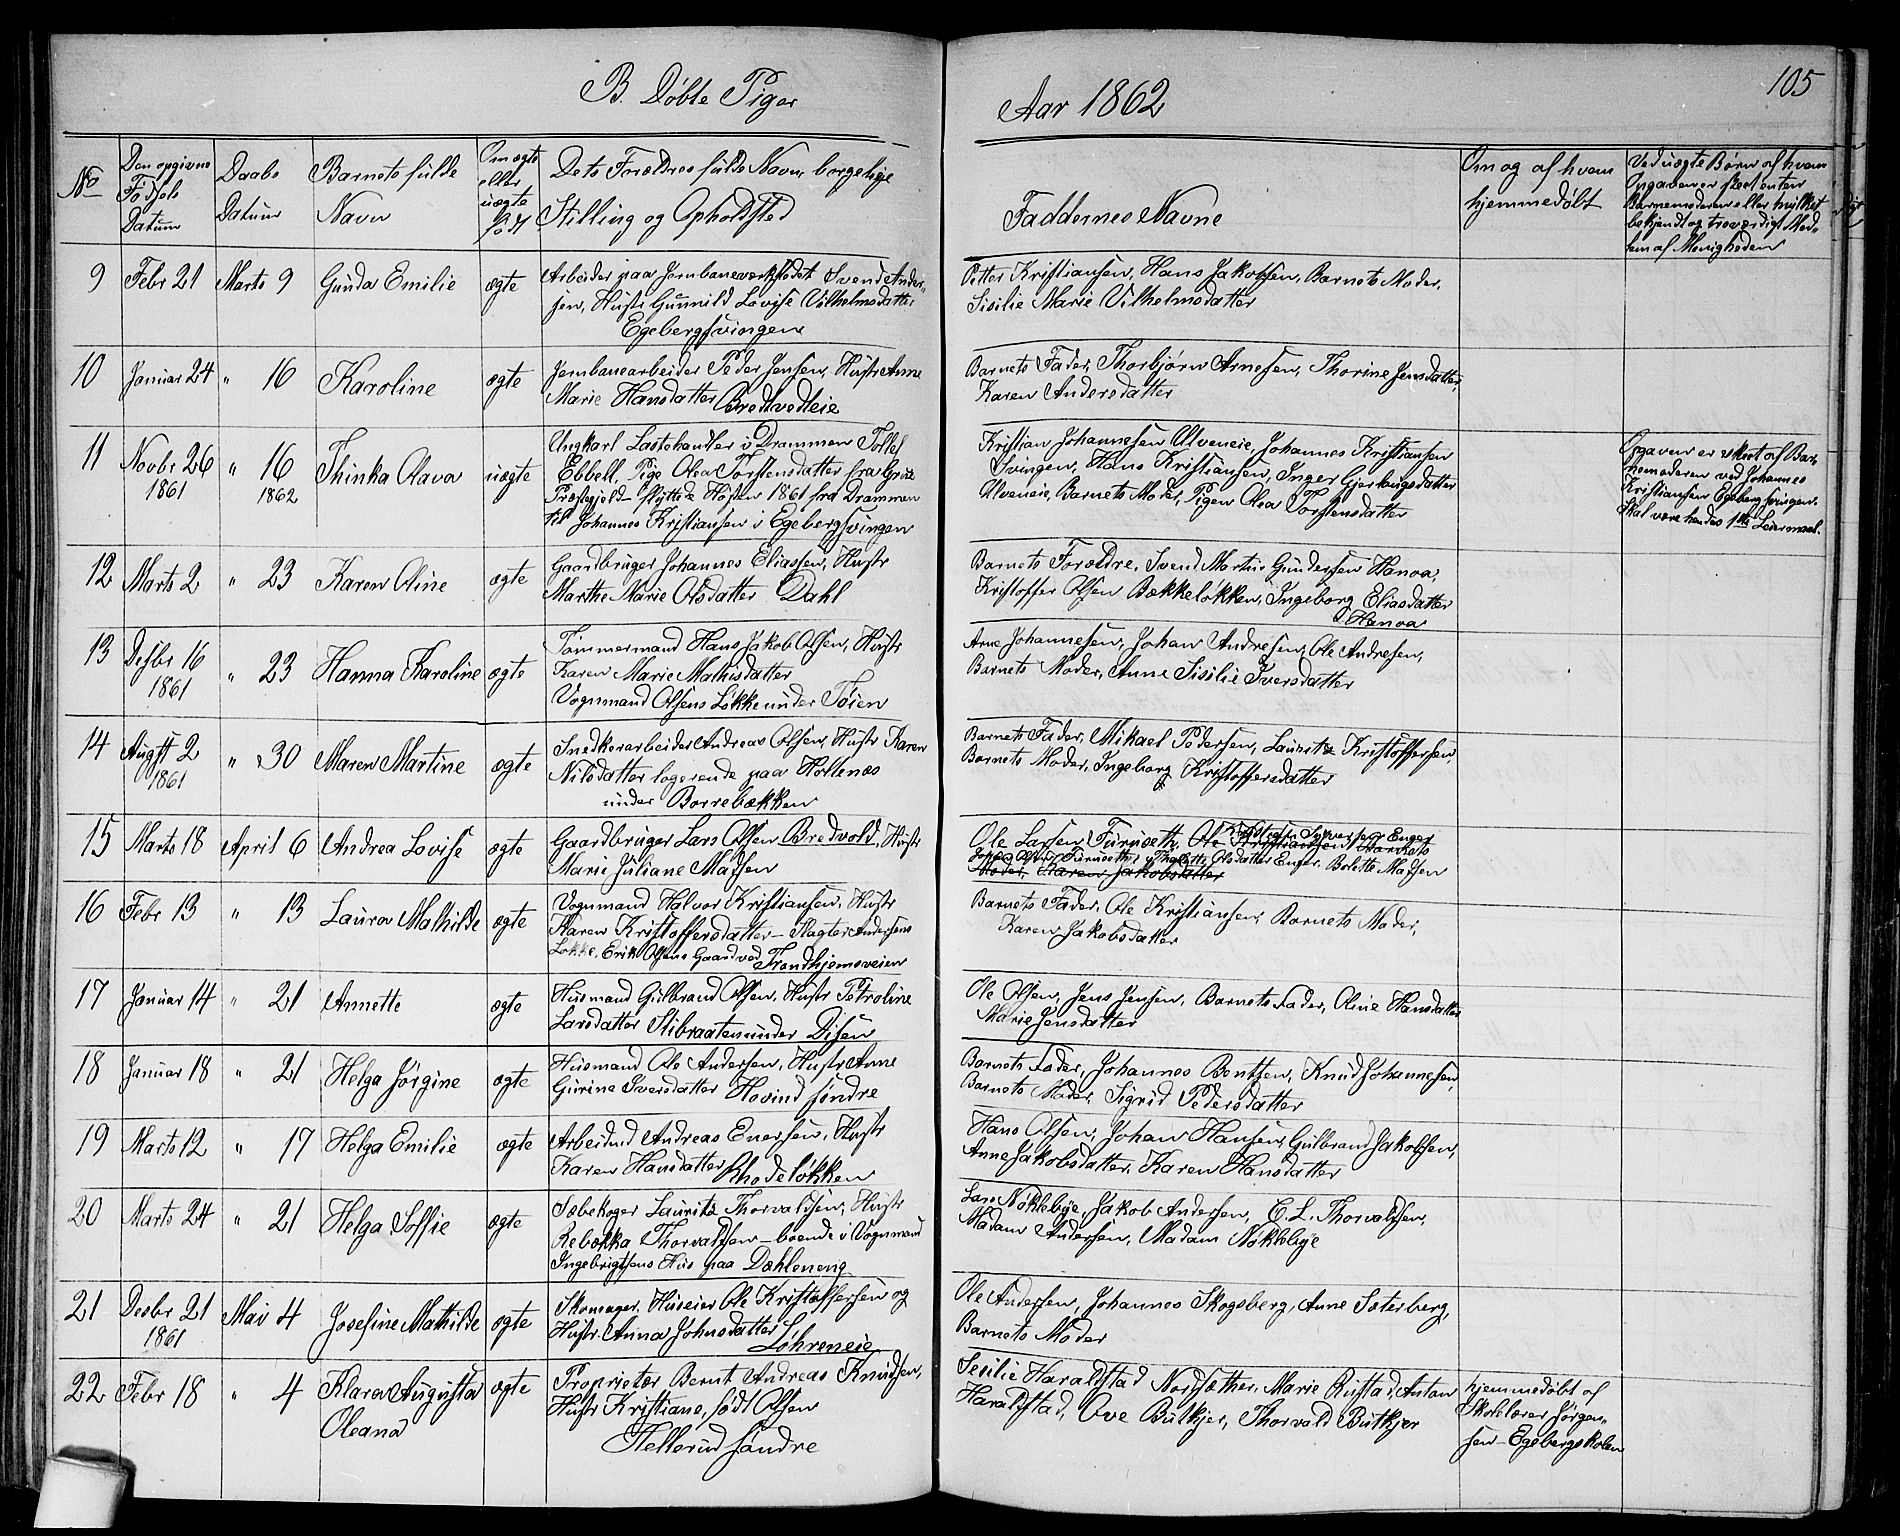 B. Døbte Piger
Aar 1862
105
No
Den opgivne Fødsels Datum
Daabs Datum
Barnets fulde Navn
Om ægte eller uægte født
Dets Forældres fulde Navn, borgelige Stilling og Opholdsted
Faddernes Navne
Om og af hvem hjemmedøbt
Ved uægte Børn af hvem
Opgaven er skeet enten
Barnemoderen eller hvilket
bekjendt og troværdigt Med-
lem af Menigheden
9 Febr 21 Marts 9 Gunda Emilie ægte
Arbeider paa Jernbaneværkstedet Svend Ander-
sen, Hustr Gunnild Lovise Vilhelmsdatter
Egebergsvingen
Petter Kristiansen, Hans Jakobsen, Barnets Moder,
Sisilie Marie Vilhelmsdatter
10 Januar 24 " 16 Karoline ægte
Jernbanearbeider Peder Jensen, Hustr Anne
Marie Hansdatter Bredtvedteie
Barnets Fader, Thorbjørn Arnesen, Thorine Jensdatter,
Karen Andersdatter
11 Novbr 26 1861 " 16 1862 Thinka Olava uægte
Ungkarl Lastehandler i Drammen Tollef
Ebbell, Pige Olea Torstensdatter fra
Præstegjeld flyttede Høsten 1861 fra Drammen
til Johannes Kristiansen i Egebergsvingen
Kristian Johannesen Ulveneie, Johannes Kristiansen
Svingen, Hans Kristiansen, Inger Gjerlaugsdatter
Ulveneie, Barnets Moder, Pigen Olea Torstensdatter
Opgaven er skeet af Bar-
nemoderen ved Johannes
Kristiansen Egebergsvingen.
Skal være hendes 1ste Leiermaal.
12 Marts 2 " 23 Karen Oline ægte
Gaardbruger Johannes Eliassen, Hustr
Marthe Marie Olsdatter Dahl
Barnets Forældre, Svend Martin Gundersen Hanoa,
Kristoffer Olsen Bækkeløkken, Ingeborg Eliasdatter
Hanoa
13 Desbr 16 1861 " 23 Hanna Karoline ægte
Tømmermand Hans Jakob Olsen, Hustr
Karen Marie Mathisdatter
Vognmand Olsens Løkke under Tøien
Arne Johannesen, Johan Andresen, Ole Andresen,
Barnets Moder, Anne Sisilie Iversdatter
14 Augst 2 1861 " 30 Maren Martine ægte
Snedkerarbeider Andreas Olsen, Hustr Karen
Nilsdatter logerende paa Hollenæs
under Borrebækken
Barnets Fader, Mikael Pedersen, Lauritz Kristoffersen,
Barnets Moder, Ingeborg Kristoffersdatter
15 Marts 18 April 6 Andrea Lovise ægte
Gaardbruger Lars Olsen Bredvold, Hustr
Marie Juliane Madsen
Ole Larsen Furuseth, Ole Kristiansen Barnets
Enger
Furuseth, Olsdatter Enger, Bolette Madsen
Moder, Karen Jakobsdatter
16 Febr 13 " 13 Laura Mathilde ægte
Vognmand Halvor Kristiansen, Hustr
Karen Kristoffersdatter - Slagter Andersens
Løkke, Erik Olsens Gaard ved Trondhjemsveien
Barnets Fader, Ole Kristiansen, Barnets Moder,
Karen Jakobsdatter
17 Januar 14 " 21 Annette ægte
Husmand Gulbrand Olsen, Hustr Petroline
Larsdatter Stibraaten under Disen
Ole Olsen, Jens Jensen, Barnets Fader, Oline Hansdatter
Marie Jensdatter
18 Januar 18 " 21 Helga Jørgine ægte
Husmand Ole Andersen, Hustr Anne
Gurine Iversdatter Hovind søndre
Barnets Fader, Johannes Bentsen, Knud Johannesen,
Barnets Moder, Sigrid Pedersdatter
19 Marts 12 " 17 Helga Emilie ægte
Arbeidsmd Andreas Enersen, Hustr
Karen Hansdatter Rhodeløkken
Hans Olsen, Johan Hansen, Gulbrand Jakobsen,
Anne Jakobsdatter, Karen Hansdatter
20 Marts 24 " 21 Helga Soffie ægte
Sæbekoger Lauritz Thorvaldsen, Hustr
Rebekka Thorvaldsen - boende i Vognmand
Ingebrigtsens Hus paa Dæhleneng
Lars Nøklebye, Jakob Andersen, C. L. Thorvaldsen,
Madam Andersen, Madam Nøklebye
21 Desbr 21 1861 Mai 4 Josefine Mathilde ægte
Skomager, Huseier Ole Kristoffersen og
Hustr Anna Johnsdatter Løhreneie
Ole Andersen, Johannes Skogsberg, Anne Sæterberg,
Barnets Moder
22 Febr 18 " 4 Klara Augusta Oleana ægte
Proprietær Bernt Andreas Knudsen,
Hustr Kristiane, født Olsen
Hellerud søndre
Sesilie Haraldstad Nordsæther, Marie Rustad, Anton
Haraldstad, Ove Butkjer, Thorvald Butkjer
hjemmedøbt af
Skolelærer Jørgen-
sen - Egebergskolen